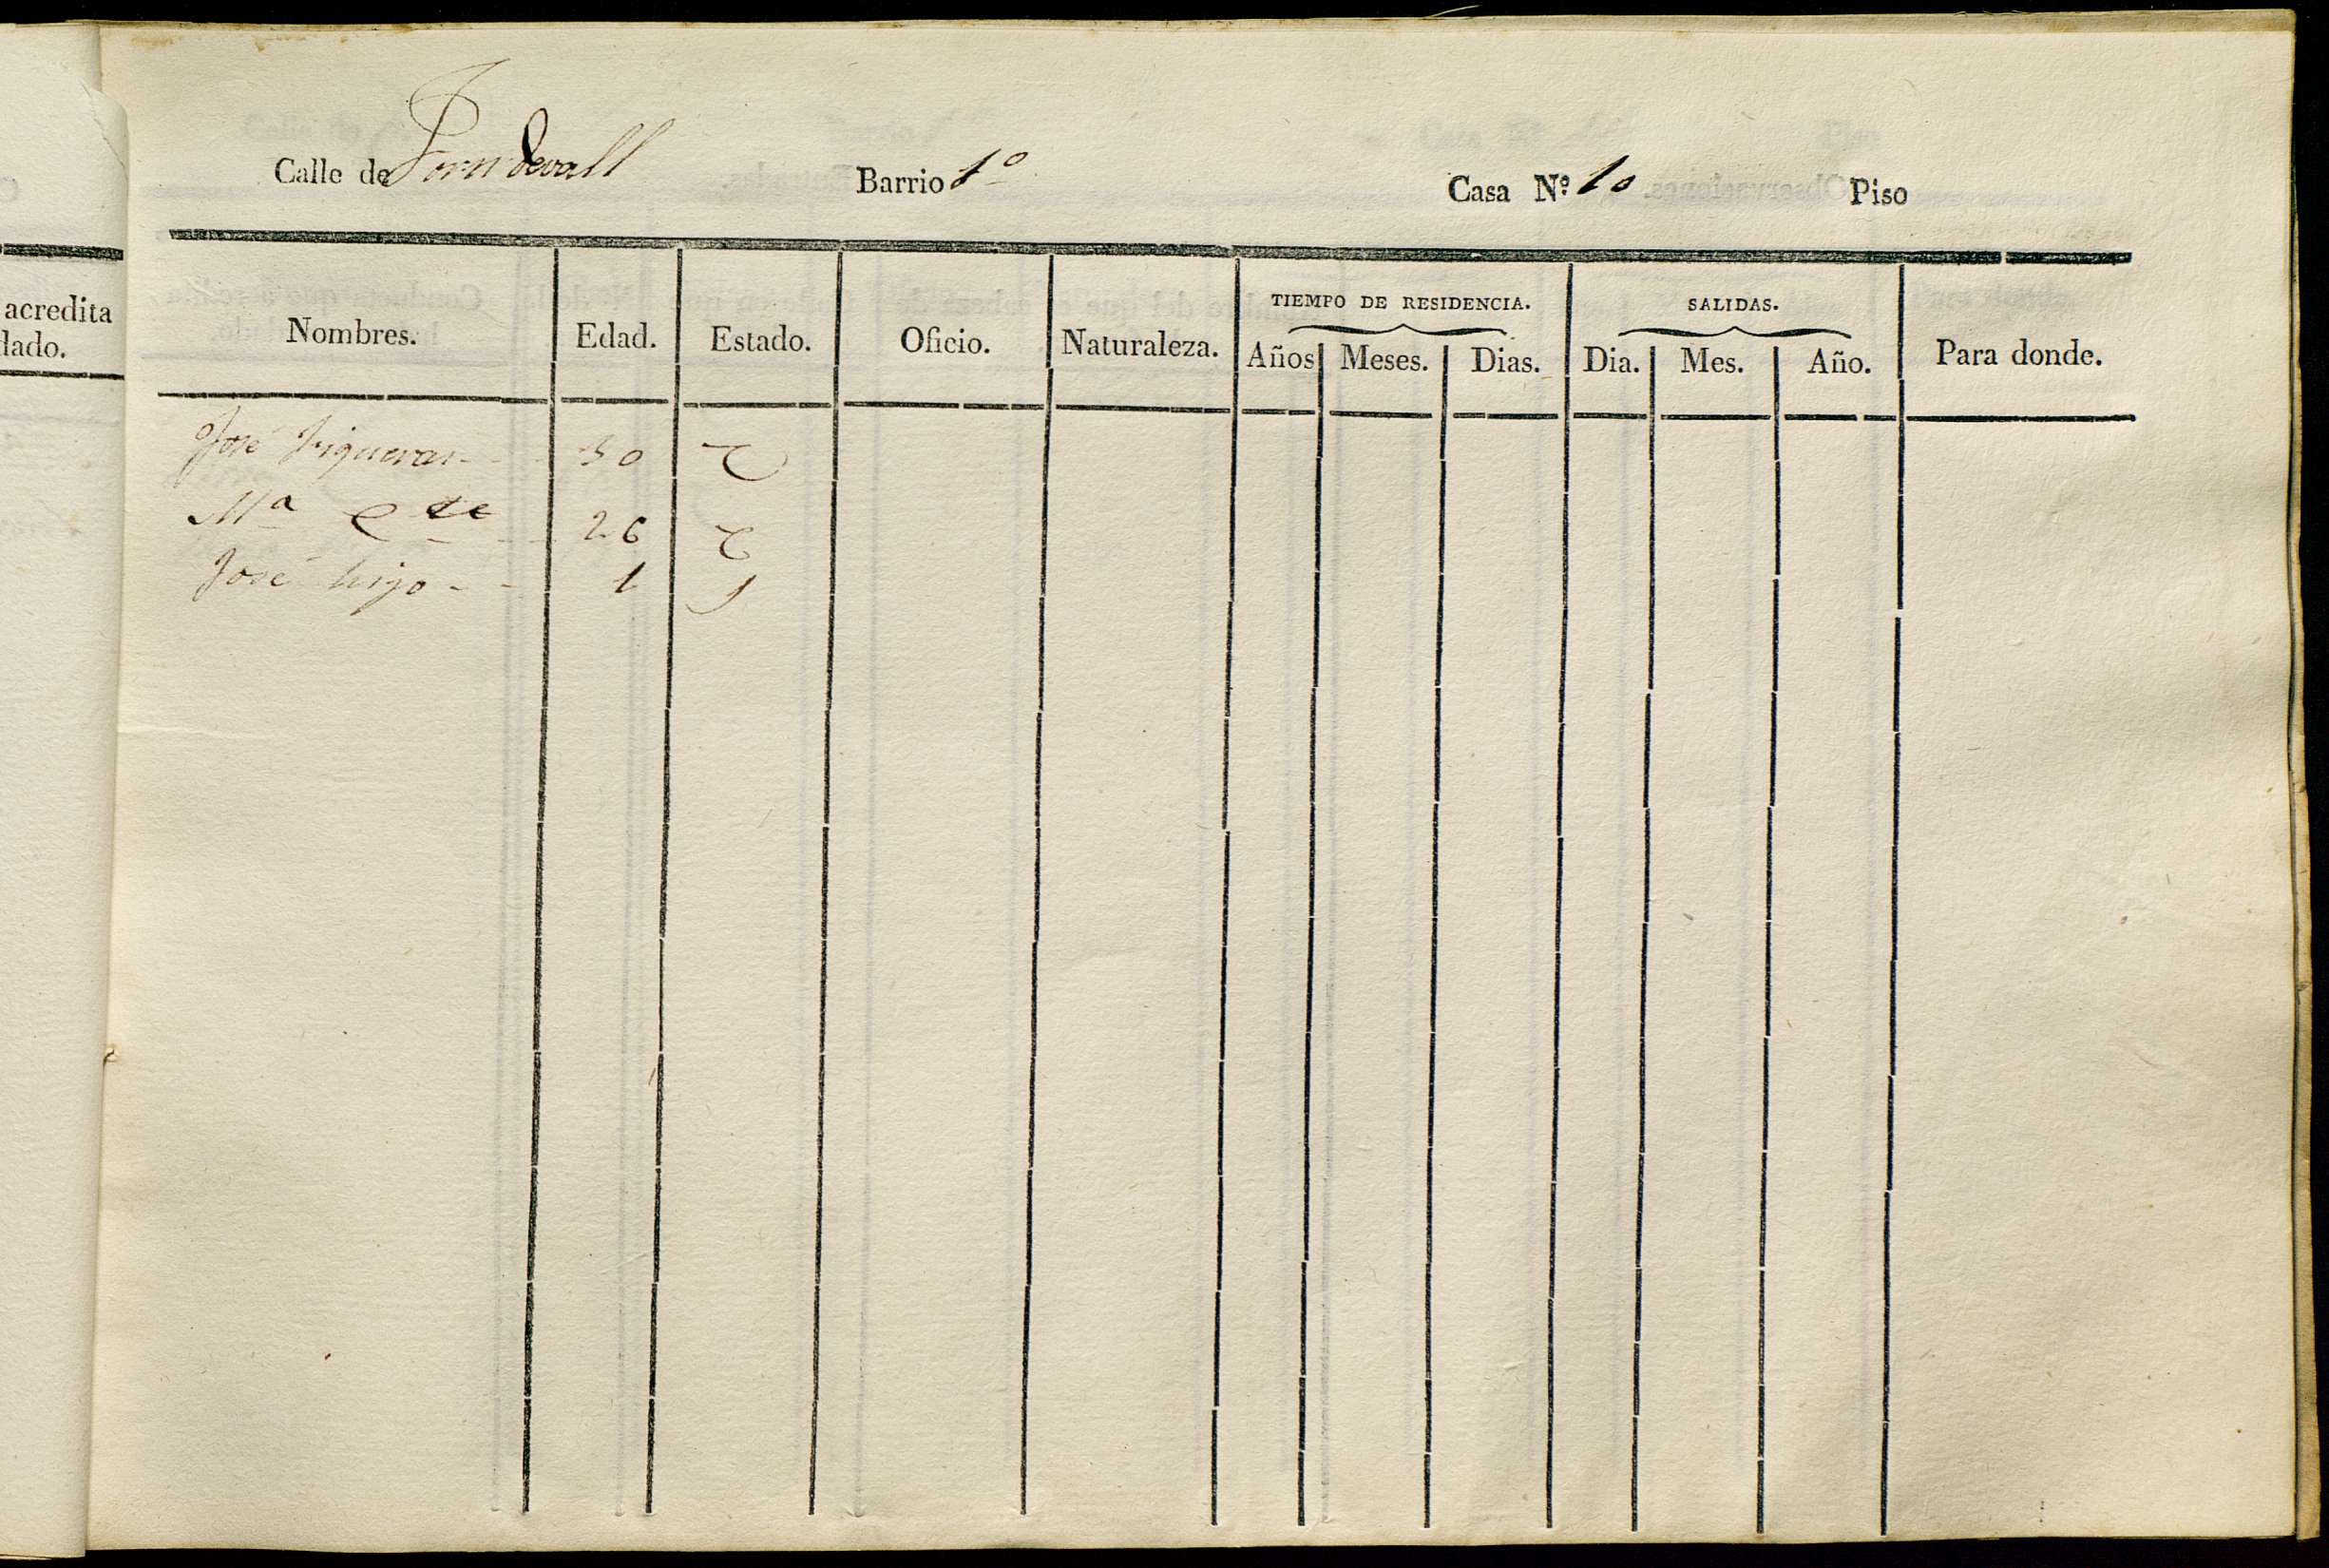 Calle de Forn devall Barrio 1º Casa Nº 10 Piso
acredita
lado.
Nombres. Edad. Estado. Oficio. Naturaleza. TIEMPO DE RESIDENCIA. SALIDAS. Para donde.
Años Meses. Dias. Dia. Mes. Año.
José Figueras - - 30 C
Mª - - 26 C
José hijo - - 1 S